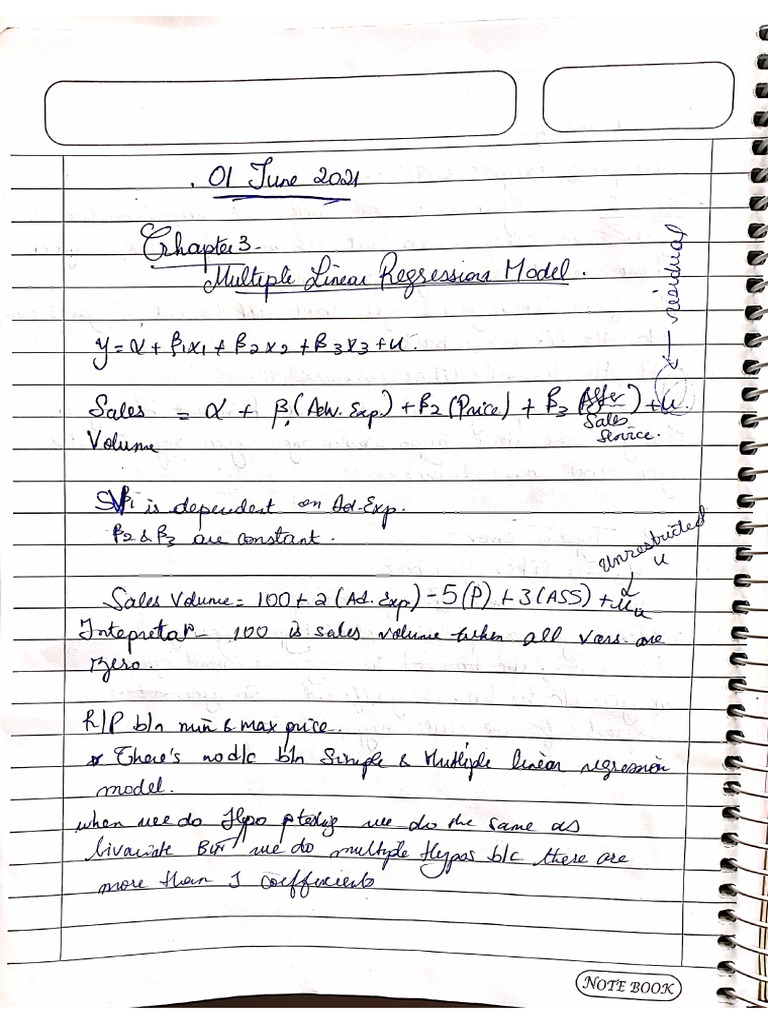 01 June 2021
Chapter 3-
Multiple Linear Regressions Model.
y = α + β1x1 + β2x2 + β3x3 + u.
Sales Volume = α + β1 (Adv. Exp.) + β2 (Price) + β3 (After Sales Service.) + u.
← residual
is dependent on Ad. Exp.
β2 & β3 are constant.
Unrestricted u
Sales Volume = 100 + 2 (Ad. Exp) - 5 (P) + 3 (ASS) + uu
100 is sales volume when all vars are
zero.
R/P b/n min & max price.
There's no d/c b/n Simple & Multiple linear regression
model.
when we do Hypo we do the same as
bivariate But we do multiple Hypos b/c there are
more than 1 coefficients
NOTE BOOK